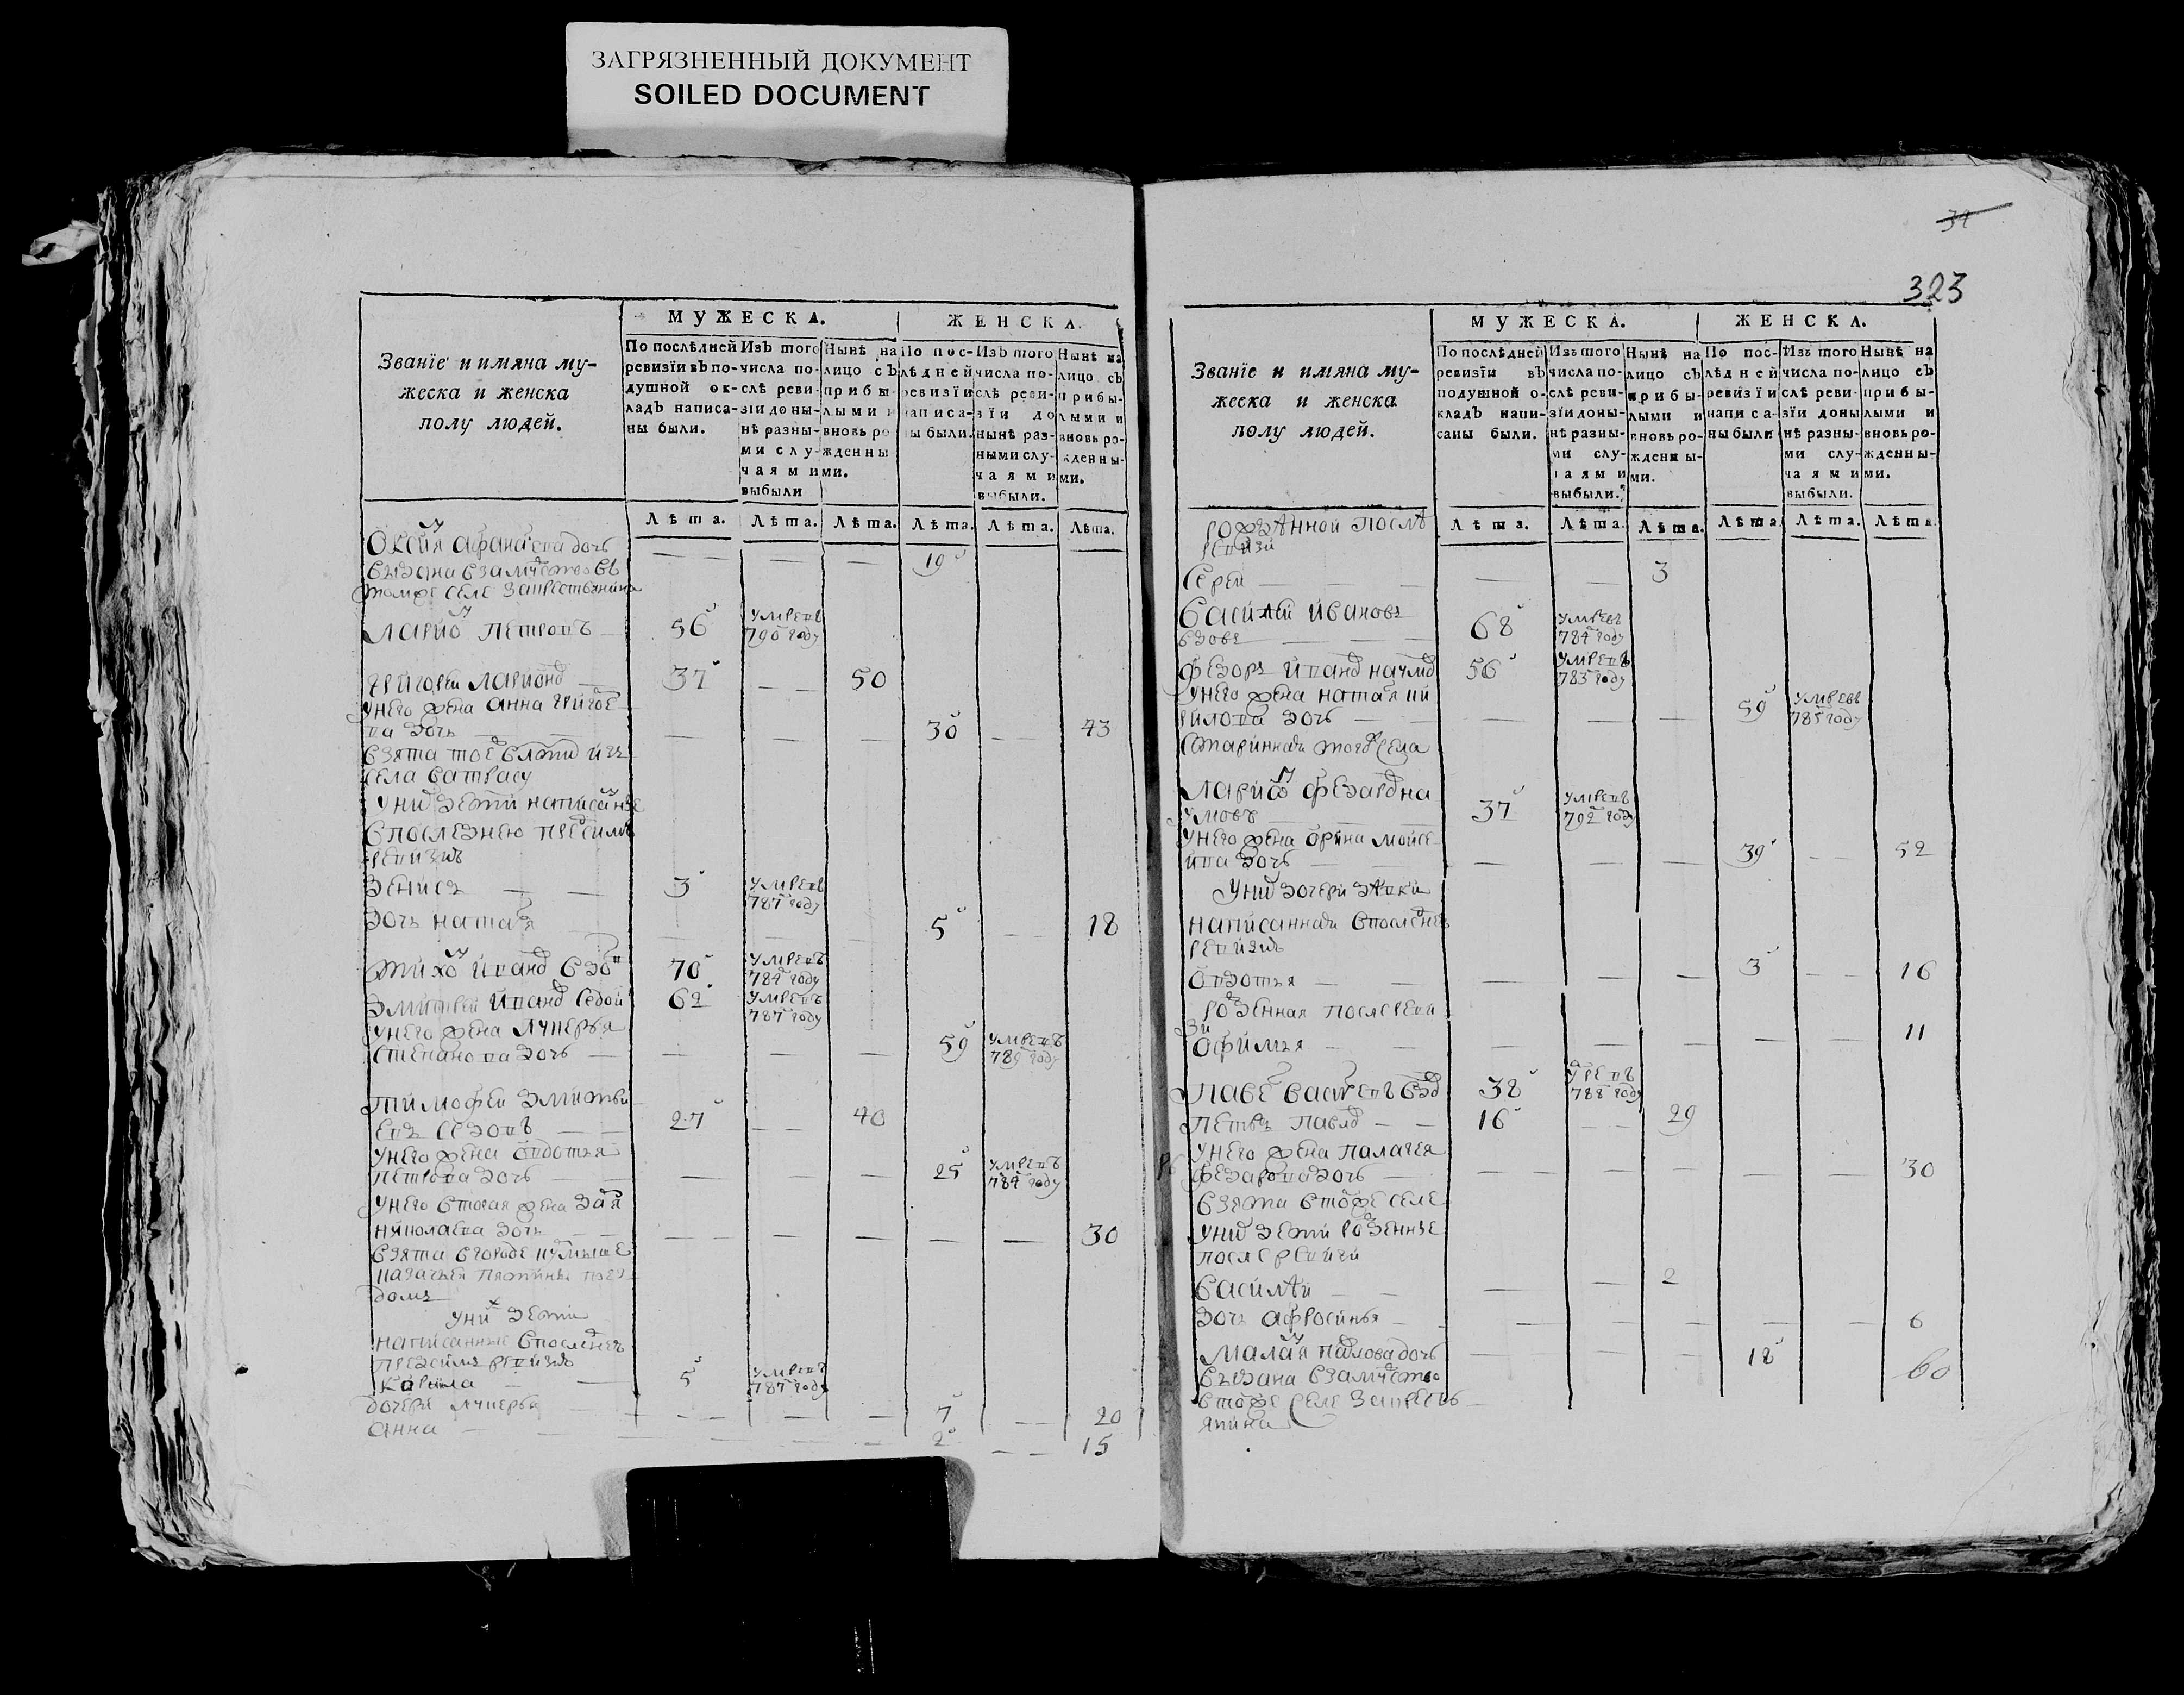 ЗАГРЯЗНЕННЫЙ ДОКУМЕНТ
SOILED DOCUMENT
Званїе и имяна му-
жеска и женска
полу людей.
МУЖЕСКА.
ЖЕНСКА.
По послѣдней
ревизїи въ по-
душной ок-
ладъ написа-
ны были.
Изъ того
числа по-
слѣ реви-
зїи доны-
нѣ разны-
ми слу-
чаями
выбыли
Нынѣ на
лицо съ
прибы-
лыми и
вновь ро-
жденны-
ми.
По пос-
лѣдней
ревизїи
написа-
ны были.
Изъ того
числа по-
слѣ реви-
зїи до
нынѣ раз-
ными слу-
чаями
выбыли.
Нынѣ на
лицо съ
прибы-
лыми и
вновь ро-
жденны-
ми.
Лѣта. Лѣта. Лѣта. Лѣта. Лѣта. Лѣта.
дочь
выдана взамужество въ 19
томже селе
Ларио Петровъ 56 умревъ
790 году
Григореи Ларионо 37 50
унего жена анна григое
ва дочь 30 43
взята
села
уни дети написаные
Споследнею пред сим
ревизиѣ
Денисъ 3 умревъ
787 году
дочь наталя 5 18
Тихо Ивано 70 умревъ
784 году
Дмитреи Ивано Седои 62 умревъ
787 году
унего жена лукерья
Степанова дочь 59 умревъ
789 году
Тимофеи Дмитри
евъ Седовъ 27 40
унего жена овдотья
Петрова дочь 25 умревъ
784 году
унего вторая жена даря
николаева дочь 30
взята вгороде
домъ
уни дети
написанные впослед
пред сим ревизиѣ
Карила 5 умревъ
787 году
дочери лукерья 7 20
анна 2 15
34
323
Званїе и имяна му-
жеска и женска
полу людей.
МУЖЕСКА.
ЖЕНСКА.
По послѣдней
ревизїи въ
подушной о-
кладъ напи-
саны были.
Изъ того
числа по-
слѣ реви-
зїи доны-
нѣ разны-
ми слу-
чаями
выбыли.
Нынѣ на
лицо съ
прибы-
лыми и
вновь ро-
жденны-
ми.
По пос-
лѣдней
ревизїи
написа-
ны были
Изъ того
числа по-
слѣ реви-
зїи доны
нѣ разны-
ми слу-
чаями
выбыли.
Нынѣ на
лицо съ
прибы-
лыми и
вновь ро-
жденны-
ми.
Лѣта. Лѣта. Лѣта. Лѣта. Лѣта. Лѣта.
рожденной послѣ
ревизи
Сергеи 3
Василеи Ивановъ
68 умревъ
784 году
Федоръ Ивано 56 умревъ
785 году
унего жена наталя
дочь 59 умревъ
785 году
Старинная села
Ларио Федаро на
умовъ 37 умревъ
792 году
унего жена орина моисе
ива дочь 39 52
уни дочери дѣвки
написанная впоследнеи
ревизиѣ
Овдотья 3 16
роденная после реви
зи
Офимья 11
Паве Васильевъ 38 умревъ
788 году
Петръ Павло 16 29
унего жена палагея
Федарова дочь 30
взята втоже селе
уни дети роденные
после ревизи
Василѣй 2
дочь афросинья 6
Маланя павлова дочь 18
выдана взамужество
втоже селе